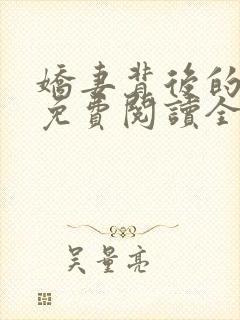 嬌妻背後的
免費閱讀全
吴量亮